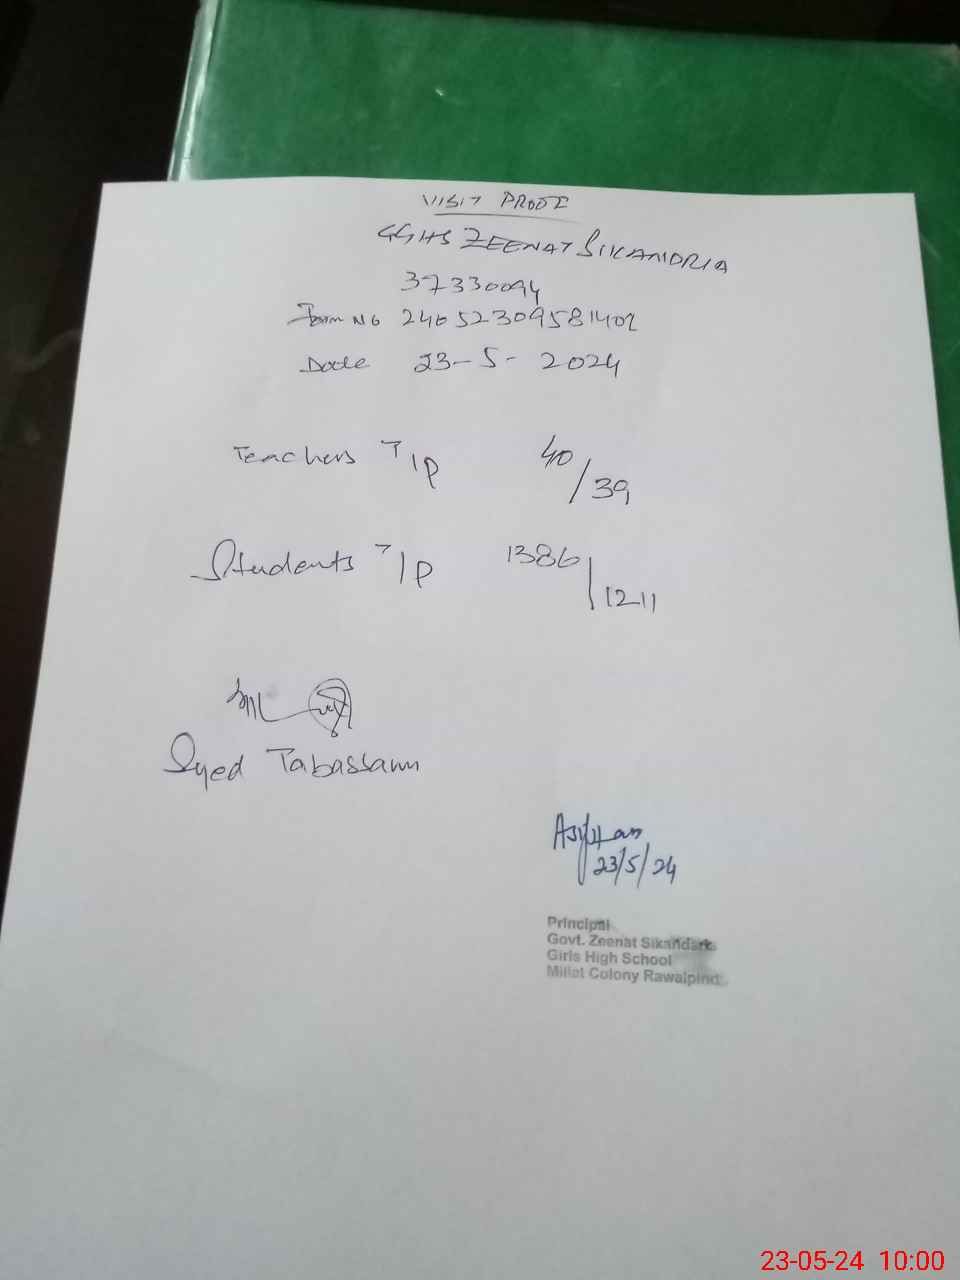 VISIT PROOF
GGHS ZEENAT SIKANDRIA
37330094
Form No 24052309581402
Date 23-5-2024
Teachers T/P 40/39
Students T/P 1386/1211
Syed Tabassam
23/5/24
Principal
Govt. Zeenat Sikandaria
Girls High School
Millat Colony Rawalpindi
23-05-24 10:00